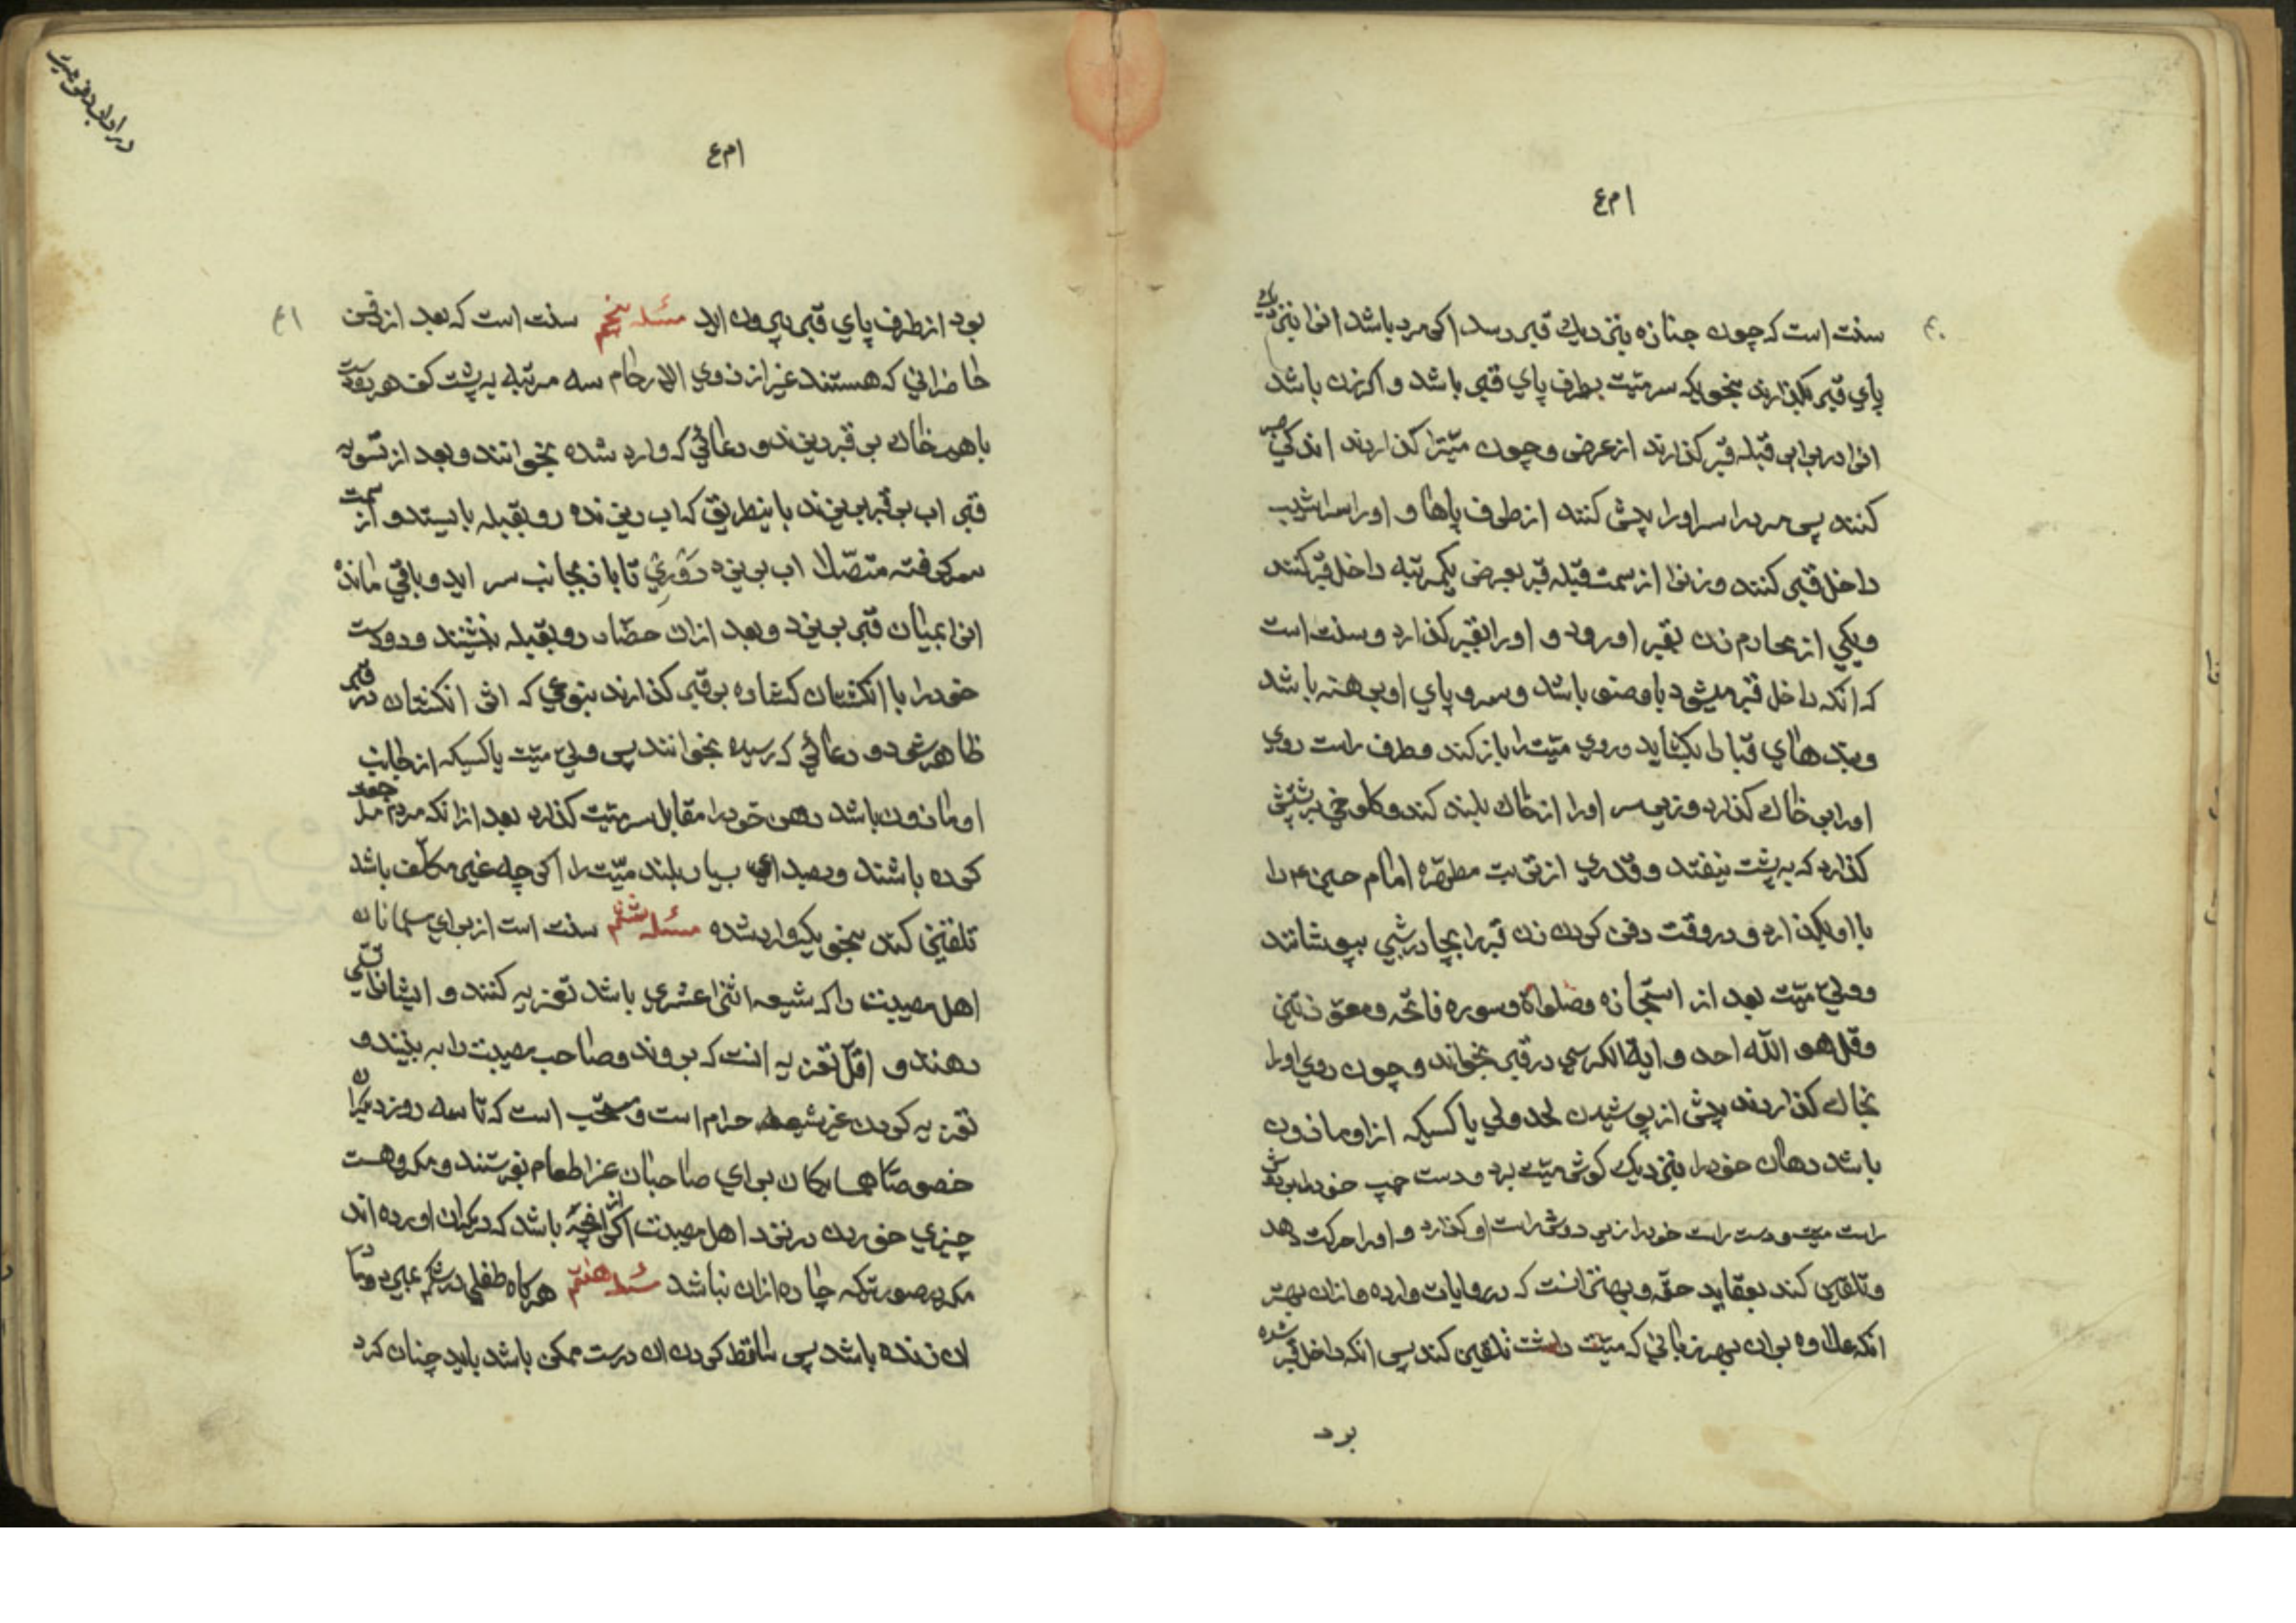 ا م ع
سنت است که چون جنازه بنزدیك قبر رسد اکر مرد باشد انرا بنزدیك
پای قبر بکذارند بنحویکه سر میّت بطرف پای قبر باشد و اکر زن باشد
انرا در برابر قبله قبر کذارند از عرض و چون میّترا کذارند اندکی صبر
کنند پس مرد را سر او را پیش کنند از طرف پاها و او را سراشیب
داخل قبر کنند و زنرا از سمت قبله قبر بعرض یکمرتبه داخل قبر کنند
و یکی از محارم زن بقبر او رود و او را بقبر کذارد و سنت است
که انکه داخل قبر میشود با وضو باشد و سر و پای او برهنه باشد
و بندهای قبا را بکشاید و روی میّت را باز کند و طرف راست روی
او را بر خاك کذارد و زیر سر او را از خاك بلند کند و کلوخی بر پشتش
کذارد که به پشت نیفتد و قدری از تربت مطهّره امام حسین ع را
با او بکذارد و در وقت دفن کردن زن قبر را بچادر شبی بپوشانند
و ولیّ میّت بعد از استجازه و صلواة و سوره فاتحه و معوّذتین
و قل هو الله احد و ایة الکرسی در قبر بخواند و چون روی او را
بخاك کذارند پیش از پوشیدن لحد ولی یا کسیکه از او ماذون
باشد دهان خود را بنزدیك کوش میّت برد و دست چپ خود را بر دوش
راست میت و دست راست خود را از زیر دوش راست او کذارد و او را حرکت دهد
و تلقین کند بعقاید حقّه و بهتر انست که در روایات وارده و ازان بهتر
انکه علاوه بران بهر زبانی که میّت داشت تلقین کند پس انکه داخل قبر شده
برد
در اداب دفن میت
ا م ع
بود از طرف پای قبر بیرون اید مسئله پنجم سنت است که بعد از دفن
حاضرانی که هستند غیر از ذوی الارحام سه مرتبه به پشت کف هر دو دست
با هم خاك بر قبر ریزند و دعائی که وارد شده بخوانند و بعد از تسویه
قبر اب بر قبر بریزند باینطریق که اب ریزنده رو بقبله بایستد و از سمت
سر کرفته متصّلا اب بریزد دَوْری تا باز بجانب سر اید و باقی مانده
انرا بمیان قبر بریزد و بعد ازان حضّار رو بقبله نشینند و دو دست
خود را با انکشتان کشاده بر قبر کذارند بنوعی که اثر انکشتان در قبر
ظاهر شود و دعائی که رسیده بخوانند پس ولیّ میّت یا کسیکه از جانب
او ماذون باشد دهن خود را مقابل سر میّت کذارد بعد ازانکه مردم مراجعت
کرده باشند و بصدای بسیار بلند میّت را اکر چه غیر مکلّف باشد
تلقین کند بنحویکه وارد شده مسئله ششم سنت است از برای مسلمانان
اهل مصیبت را که شیعه اثنا عشری باشد تعزیه کنند و ایشانرا تسلّی
دهند و اقلّ تعزیه انست که بروند و صاحب مصیبت را به بینند و
تعزیه کردن غیر شیعه حرام است و مستحّب است که تا سه روز دیکران
خصوصًا همسایکان برای صاحبان عزا طعام بفرستند و مکروهست
چیزی خوردن در نزد اهل مصیبت اکر انچه باشد که دیکران اورده اند
مکر در صورتیکه چاره ازان نباشد مسئله هفتم هرکاه طفلی در شکم بمیرد و مادر
ان زنده باشد پس ساقط کردن ان درست ممکن باشد باید چنان کرد